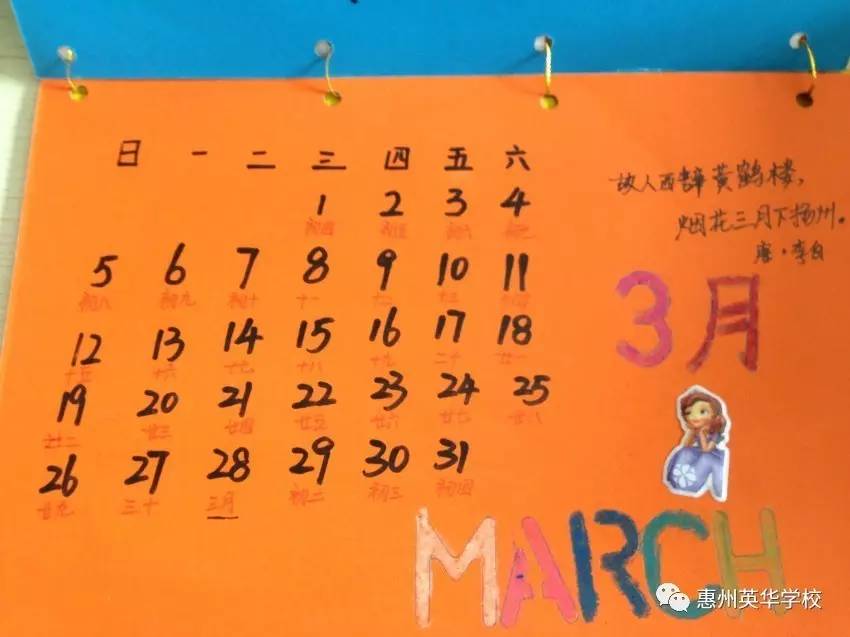 日 一 二 三 四 五 六
1 2 3 4
初四 初五 初六 初七
5 6 7 8 9 10 11
初八 初九 初十 十一 十二 十三 十四
12 13 14 15 16 17 18
十五 十六 十七 十八 十九 二十 廿一
19 20 21 22 23 24 25
廿二 廿三 廿四 廿五 廿六 廿七 廿八
26 27 28 29 30 31
廿九 三十 三月 初二 初三 初四
故人西辞黄鹤楼，
烟花三月下扬州。
唐·李白
3月
MARCH
惠州英华学校